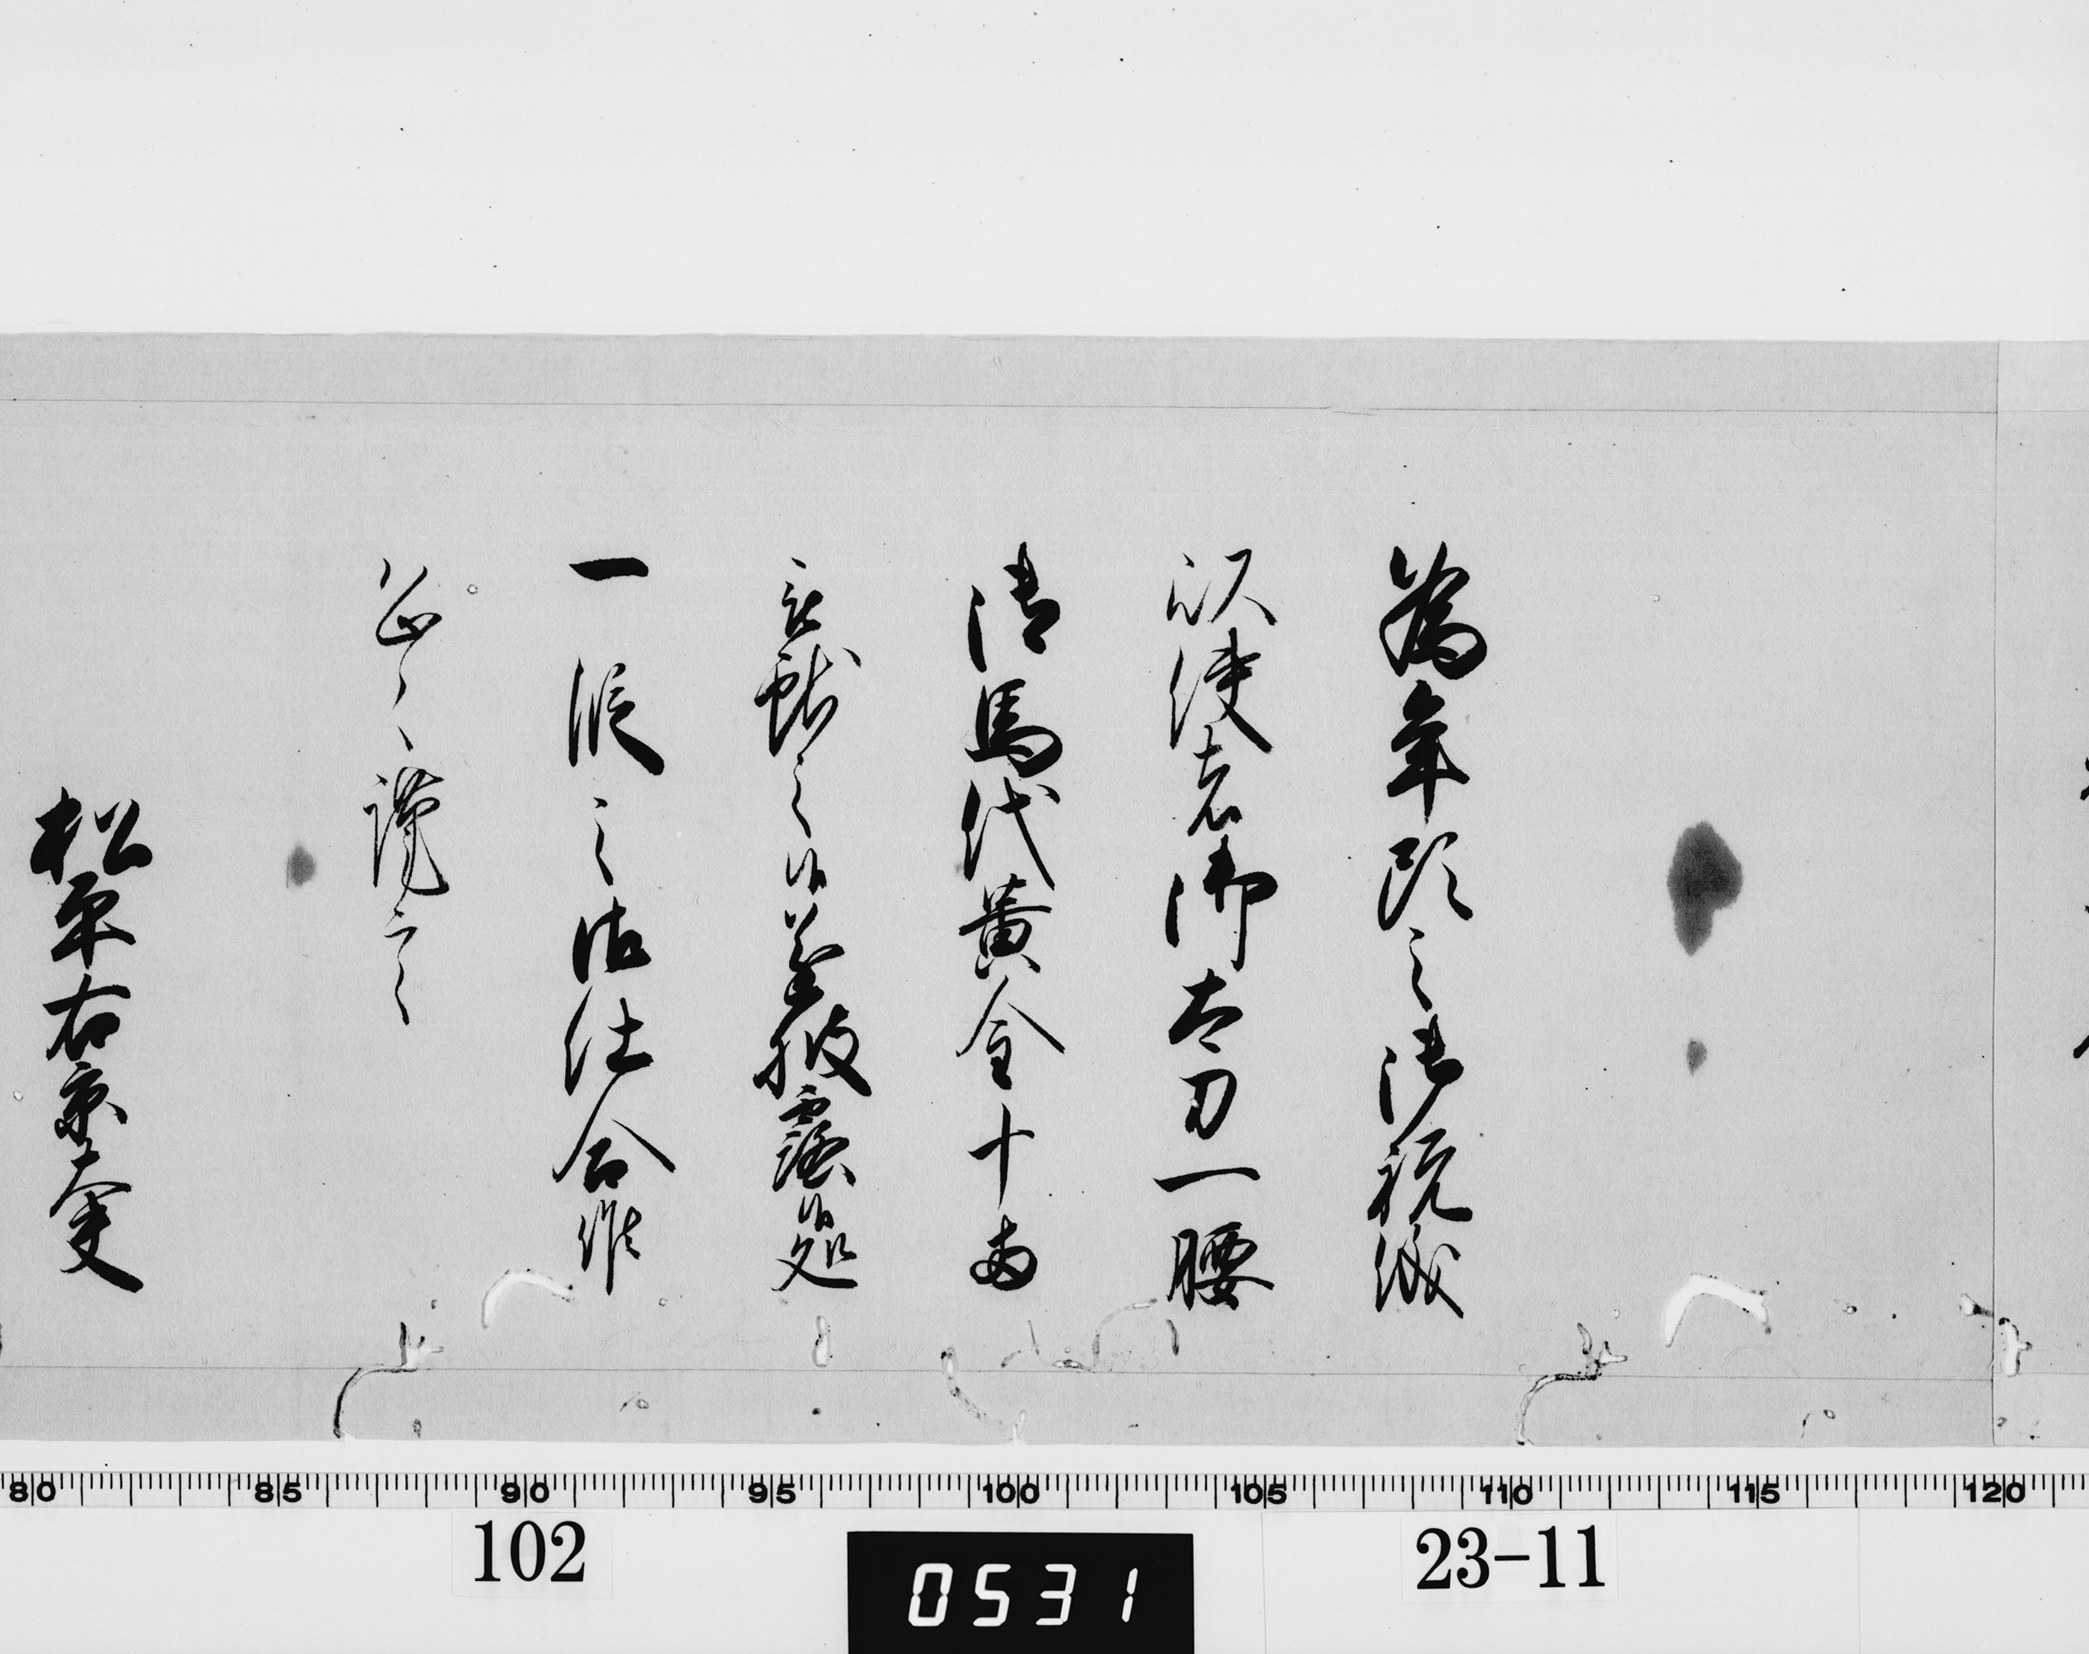 為年頭之御祝儀
以使者御太刀一腰
御馬代黄金十両
献之候遂披露候処
一段之御仕合候
恐々謹言
松平右京大夫
80 85 90 95 100 105 110 115 120
102
0531
23-11